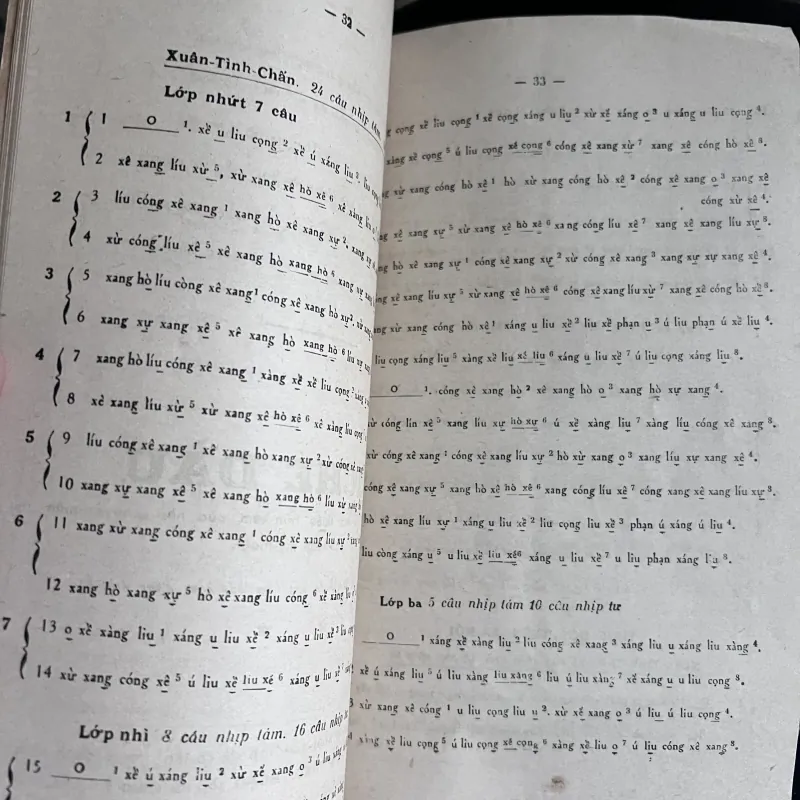 — 32 —
Xuân-Tình-Chấn. 24 câu nhịp tám,
Lớp nhứt 7 câu
1 1 O ¹. xề u liu cọng ² xề ú xáng liu ³. liu cọng
2 xê xang líu xừ ⁵, xừ xang xê hò xê ⁶ xê xàng líu
2 3 líu cóng xê xang ¹ xang hò xê xang xự ². xang xự
4 xừ cóng líu xê ⁵ xê xang hò xang hò ⁶ xang xự xang
3 5 xang hò líu còng xê xang ¹ cóng xê xang hò xự ². xừ xang
6 xang xự xang xê ⁵ xê xang hò xang hò ⁶ líu xự
4 7 xang hò líu cóng xê xang ¹ xàng xề xề liu cọng ²
8 xê xang líu xừ ⁵ xừ xang xê hò xê ⁶ xê xàng líu cọng
5 9 líu cóng xê xang ¹ xê xang hò xang xự ² xừ cóng xê xang
10 xang xự xang xê ⁵ xê xang hò xang hò ⁶ líu xừ xang
6 11 xang xừ xang cóng xê xang ¹ cóng xê xang líu xự ²
12 xang hò xang xự ⁵ hò xê xang líu cóng ⁶ xề xàng líu
7 13 o xề xàng liu ¹ xáng u liu xề ² xáng u liu xề ³ liu cọng
14 xừ xang cóng xê ⁵ ú liu xề liu xề ⁶ xáng u liu xề ⁷
Lớp nhì 8 câu nhịp tám. 16 câu nhịp tư
15 O ¹ xề ú xáng liu ² xừ xế xang o ³ ú liu xáng
— 33 —
cọng xề liu cọng ¹ xề cọng xáng u liu ² xừ xế xáng o ³ u xáng u liu cọng ⁴.
xáng xề cọng ⁵ ú liu cọng xê cọng ⁶ cóng xê xang xừ ⁷ xang xê cóng hò xê ⁸.
xừ xang cóng hò xê ¹ hò xừ xang cóng hò xê ² cóng xê xang o ³ xang xê
cóng xừ xê ⁴.
xê xang xự ⁵ xừ xang xê hò xê ⁶ xang cóng líu xê ⁷ xang xê xang líu xự ⁸.
hò xê xang xự ¹ cóng xê xang xự ² xừ cóng xê xang ³ xang xự xang xê ⁴.
xê xang líu xự ⁵ xừ xang xê hò xê ⁶ cóng xê xang líu xừ ⁷ xang xê cóng hò xê ⁸.
xang xừ xang cóng hò xê ¹ xáng u liu xề ² liu xề phạn u ³ ú liu phạn ú xề liu ⁴.
liu cọng xáng liu ⁵ xàng xề liu xề liu ⁶ xáng u liu xề ⁷ ú liu cọng xáng liu ⁸.
O ¹. cóng xê xang hò ² xê xang hò o ³ xang hò xự xang ⁴.
xừ cóng lín xê ⁵ xang líu xự hò xự ⁶ ú xề xàng liu ⁷ xàng líu cóng xê xang ⁸.
xừ cóng xê xang ¹ cóng xê xang líu xự ² hò xừ xang o ³ xang líu xự xang xê ⁴.
cóng xê xang xự ⁵ xang hò xê hò xê ⁶ xang cóng líu xê ⁷ cóng xang xê xang líu xự ⁸.
hò xê xang líu xự ¹ xáng u liu xề ² liu cọng liu xề ³ phạn ú xáng ú liu ⁴.
liu còng xáng u ⁵ u liu xề liu xề⁶ xáng u liu xề ⁷ u liu phạn xáng liu ⁸.
Lớp ba 5 câu nhịp tám 10 câu nhịp tư
O ¹ xáng xề xàng liu ² líu cóng xê xang ³ xáng liu u xáng liu xàng ⁴.
xề ú xáng liu ⁵ ú liu xàng liu xàng ⁶ liu ú liu xàng ⁷ xế xáng u u liu cọng ⁸.
xừ xang xê cóng ¹ u liu cọng liu u ². xừ xế xang o ³ ú liu ú liu cọng ⁴.
xàng xề liu cọng ⁵ ú liu cọng xê cọng ⁶ xàng xề liu o ⁷ ú liu cóng xê xang ⁸.